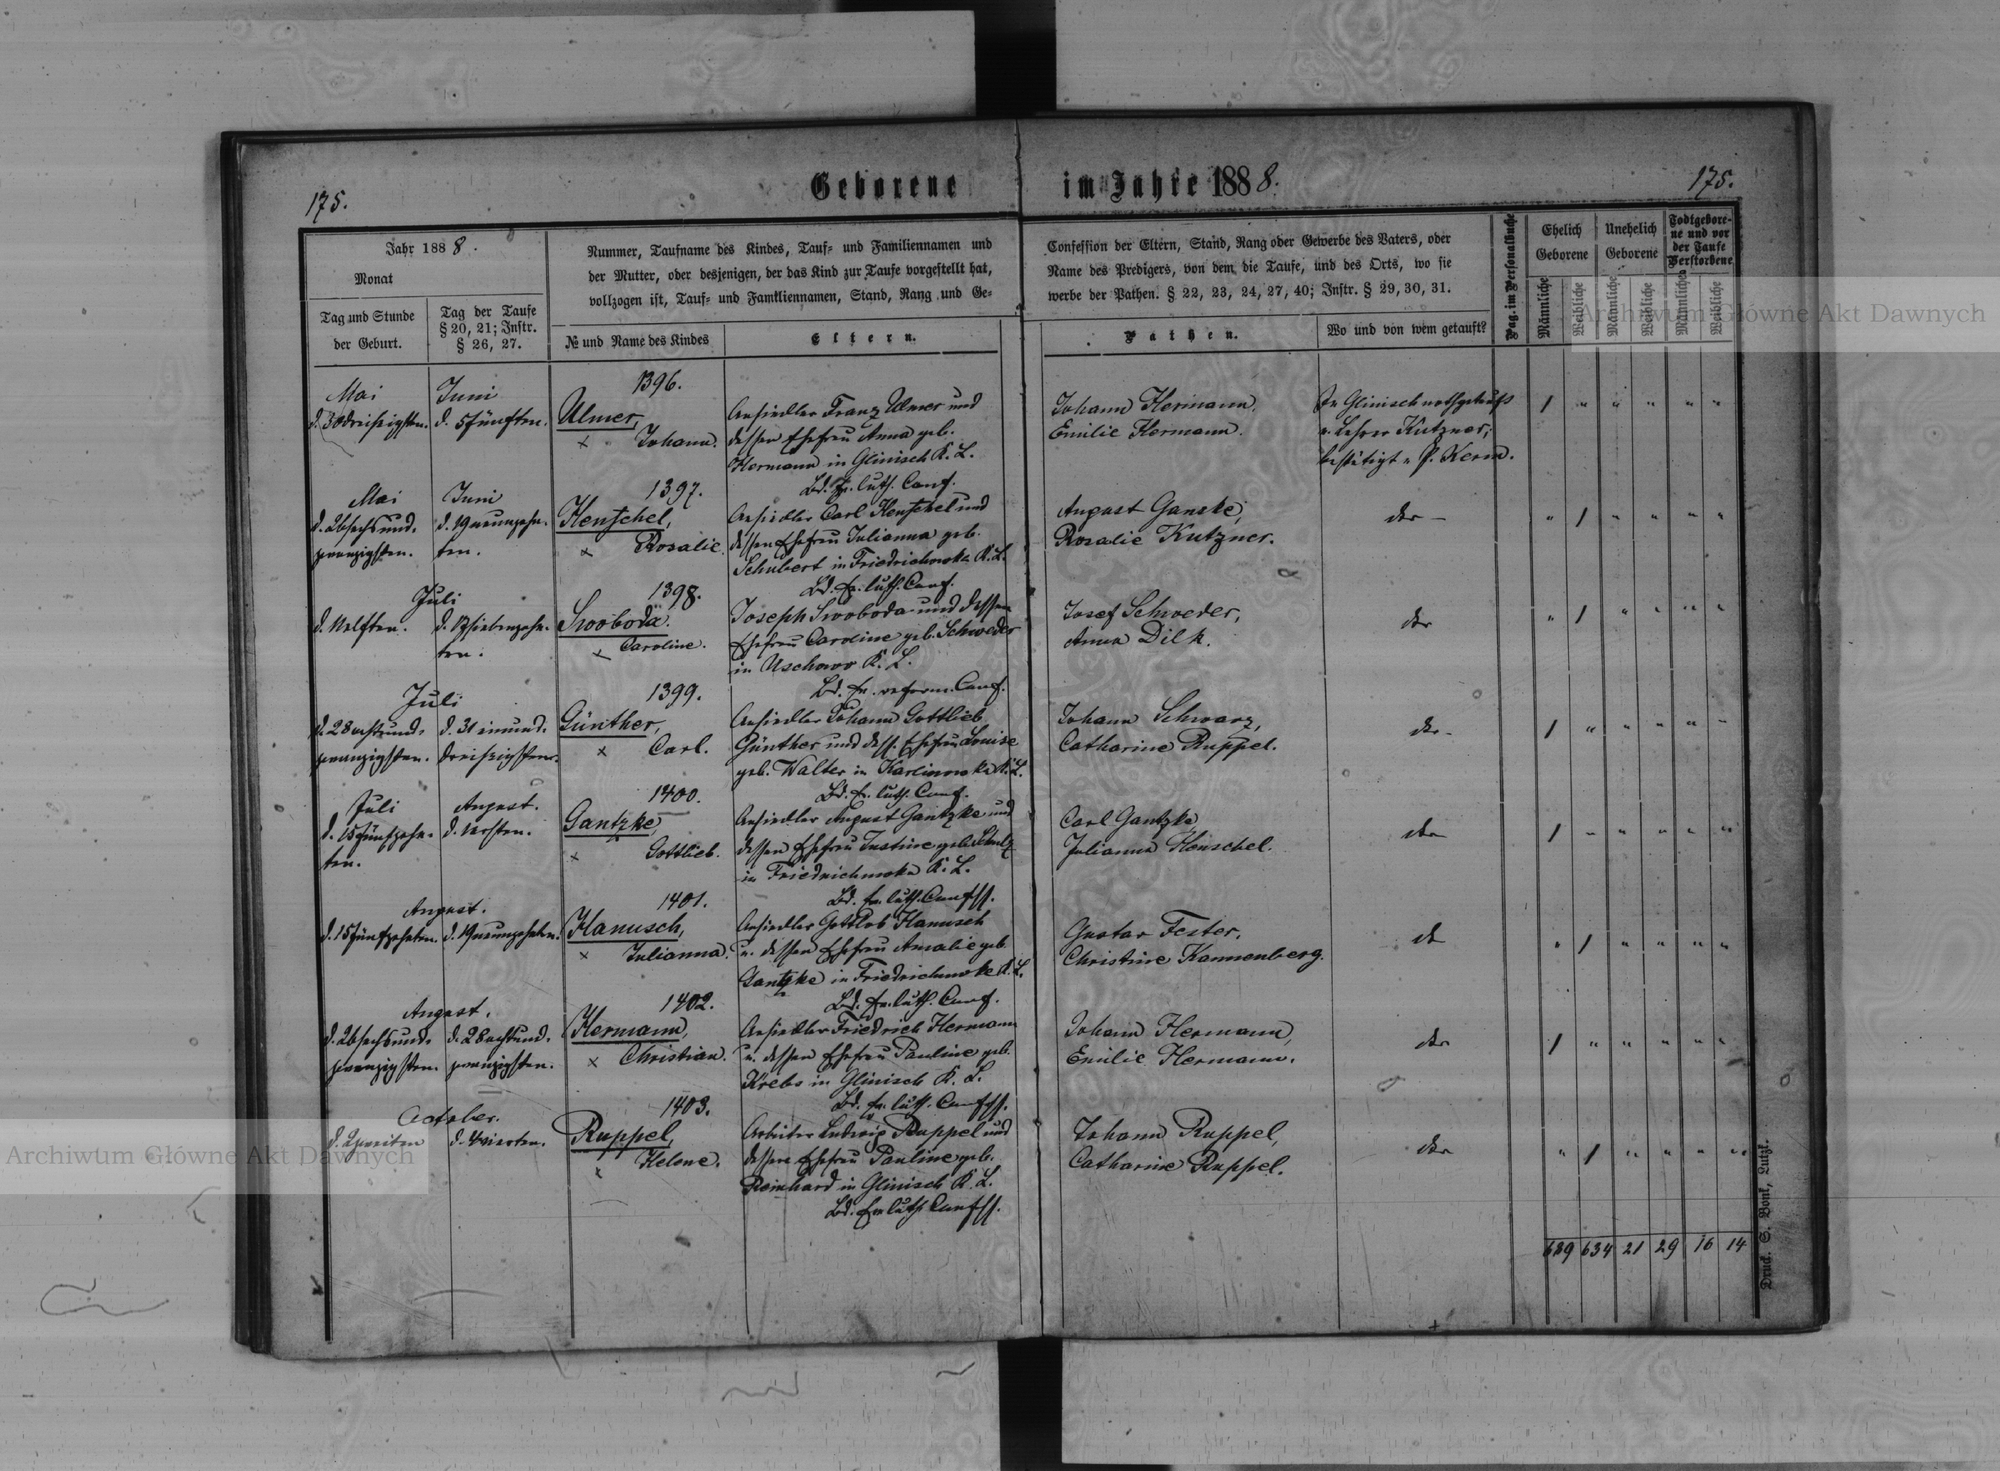 175.
Geborene
im Jahre 1888.
175.
Jahr 1888.
Monat
Tag und Stunde
der Geburt.
Tag der Taufe
§ 20, 21; Instr.
§ 26, 27.
Nummer, Taufname des Kindes, Tauf- und Familiennamen und
der Mutter, oder desjenigen, der das Kind zur Taufe vorgestellt hat,
vollzogen ist, Tauf- und Familiennamen, Stand, Rang und Ge-
№ und Name des Kindes
Eltern.
Confession der Eltern, Stand, Rang oder Gewerbe des Vaters, oder
Name des Predigers, von dem die Taufe, und des Orts, wo sie
werbe der Pathen. § 22, 23, 24, 27, 40; Instr. § 29, 30, 31.
Pathen.
Wo und von wem getauft?
Pag. im Personalbuche
Ehelich
Geborene
Unehelich
Geborene
Todtgebore-
ne und vor
der Taufe
Verstorbene
Männliche
Weibliche
Männliche
Weibliche
Männliche
Weibliche
1396.
Mai
Juni
d. 30 dreißigsten.
d. 5 fünften.
Ulmer,
× Johann.
Ansiedler Franz Ulmer und
dessen Ehefrau Anna geb.
Hermann in Glinisch K. L.
Bd. ev. luth. Conf.
Johann Hermann,
Emilie Hermann.
In Glinisch nothgetauft
v. Lehrer Kutzner,
bestätigt v. P. Kerm.
1 " " " " "
1397.
Mai
Juni
d. 26 sechsund-
zwanzigsten.
d. 19 neunzehn-
ten.
Henschel,
× Rosalie.
Ansiedler Carl Henschel und
dessen Ehefrau Julianna geb.
Schubert in Friedrichowka K. L.
Bd. ev. luth. Conf.
August Ganske,
Rosalie Kutzner.
" 1 " " " "
1398.
Juli
d. 11 elften.
d. 17 siebenzehn-
ten.
Swoboda.
× Caroline.
Joseph Swoboda und dessen
Ehefrau Caroline geb. Schweder
in Uschowo K. L.
Bd. ev. reform. Conf.
Josef Schweder,
Anna Dilk.
" 1 " " " "
1399.
Juli
d. 28 achtund-
zwanzigsten.
d. 31 einund-
dreißigsten.
Günther,
× Carl.
Ansiedler Johann Gottlieb
Günther und dess. Ehefrau Louise
geb. Walter in Karlinowka K. L.
Bd. ev. luth. Conf.
Johann Schwarz,
Catharine Ruppel.
1 " " " " "
1400.
Juli
August.
d. 15 fünfzehn-
ten.
d. 1 ersten.
Gantzke,
× Gottlieb.
Ansiedler August Gantzke und
dessen Ehefrau Justine geb. Schulz
in Friedrichowka K. L.
Bd. ev. luth. Conff.
Carl Gantzke
Julianna Henschel.
1 " " " " "
1401.
August.
d. 15 fünfzehnten.
d. 19 neunzehnten.
Hanusch,
× Julianna.
Ansiedler Gottlob Hanusch
u. dessen Ehefrau Amalie geb.
Gantzke in Friedrichowke K. L.
Bd. ev. luth. Conf.
Gustav Fester,
Christine Kannenberg.
" 1 " " " "
1402.
August.
d. 26 sechsund-
zwanzigsten.
d. 28 achtund-
zwanzigsten.
Hermann,
× Christian.
Ansiedler Friedrich Hermann
u. dessen Ehefrau Pauline geb.
Krebs in Glinisch K. L.
Bd. ev. luth. Conff.
Johann Hermann,
Emilie Hermann.
1 " " " " "
1403.
October.
d. 2 zweiten
d. 4 vierten.
Ruppel,
× Helene.
Arbeiter Ludwig Ruppel und
dessen Ehefrau Pauline geb.
Reinhard in Glinisch K. L.
Bd. ev. luth. Conff.
Johann Ruppel,
Catharine Ruppel.
" 1 " " " "
689 634 21 29 16 14
Druck. S. Bonk, Lutzk.
Archiwum Główne Akt Dawnych
Archiwum Główne Akt Dawnych